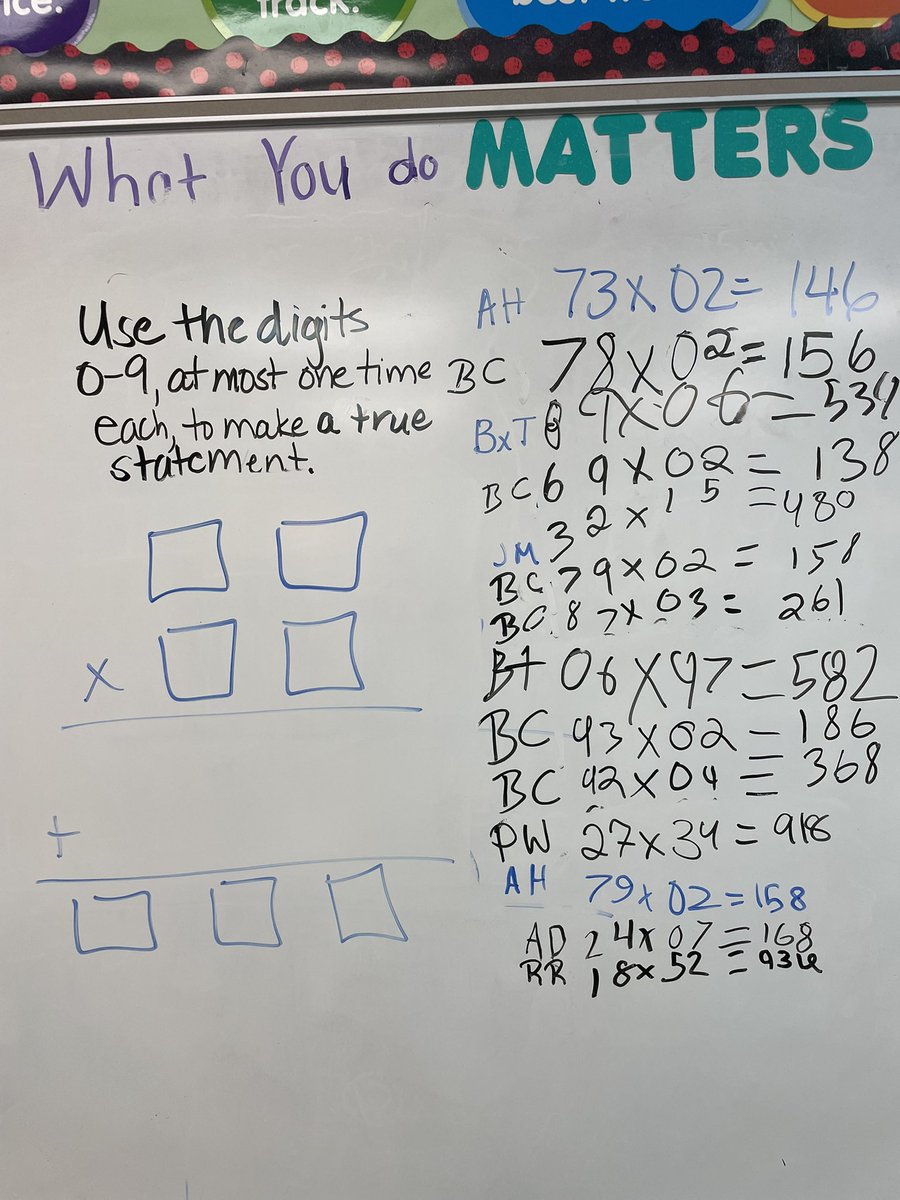 ice.
track.
What You do MATTERS
Use the digits
0-9, at most one time
each, to make a true
statement.
x
+
AH 73x02= 146
BC 78x02=156
BxT 89x06=534
BC 69x02= 138
JM 32x15=480
BC 79x02= 158
BC 87x03= 261
BT 06x97=582
BC 93x02=186
BC 92x04= 368
PW 27x34=918
AH 79x02=158
AD 24x07=168
RR 18x52=936